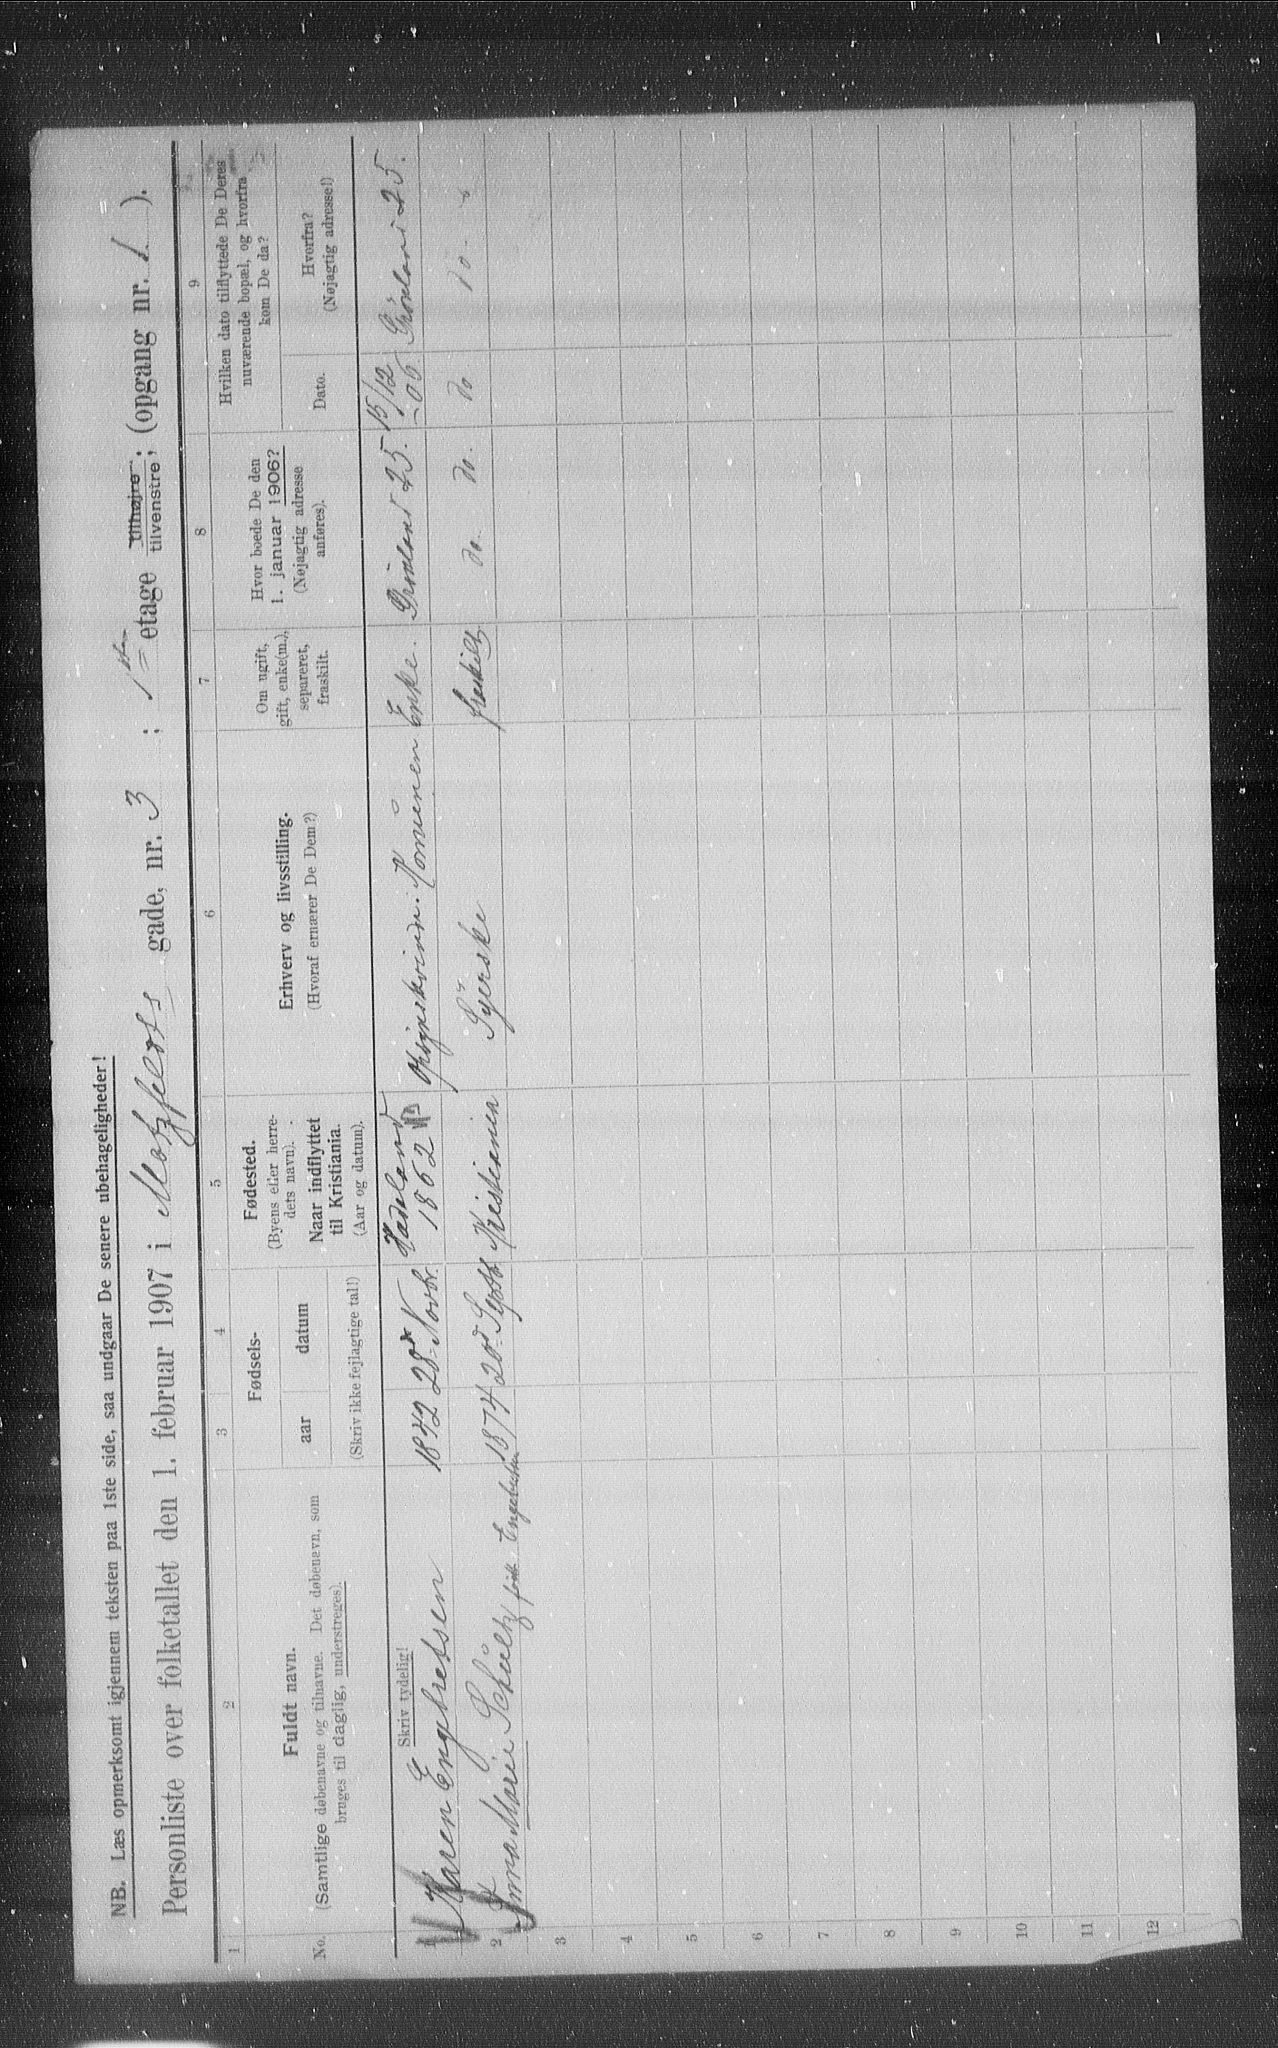 NB. Læs opmerksomt igjennem teksten paa 1ste side, saa undgaar De senere ubehageligheder!
Personliste over folketallet den 1. februar 1907 i Motzfeldts gade, nr. 3 ; 1ste etage tilhøjre, tilvenstre; (opgang nr. 1. ).
1 2 3 4 5 6 7 8 9
No.
Fuldt navn.
(Samtlige døbenavne og tilnavne. Det døbenavn, som
bruges til daglig, understreges).
Skriv tydelig!
Fødsels-
aar datum
(Skriv ikke fejlagtige tal!)
Fødested.
(Byens eller herre-
dets navn).
Naar indflyttet
til Kristiania.
(Aar og datum).
Erhverv og livsstilling.
(Hvoraf ernærer De Dem?)
Om ugift,
gift, enke(m.),
separeret,
fraskilt.
Hvor boede De den
1. januar 1906?
(Nøjagtig adresse
anføres).
Hvilken dato tilflyttede De Deres
nuværende bopæl, og hvorfra
kom De da?
Dato.
Hvorfra?
(Nøjagtig adresse!)
1 Karen Engebretsen 1842 28 Novbr. Hadeland 1862 Enke. Grønland 25. 15/12 -06. Grønland 25.
2 Anna Marie Schultz født Engebretsen 1874 20 Septb Kristiania Syerske fraskilt do. do. do do.
3
4
5
6
7
8
9
10
11
12